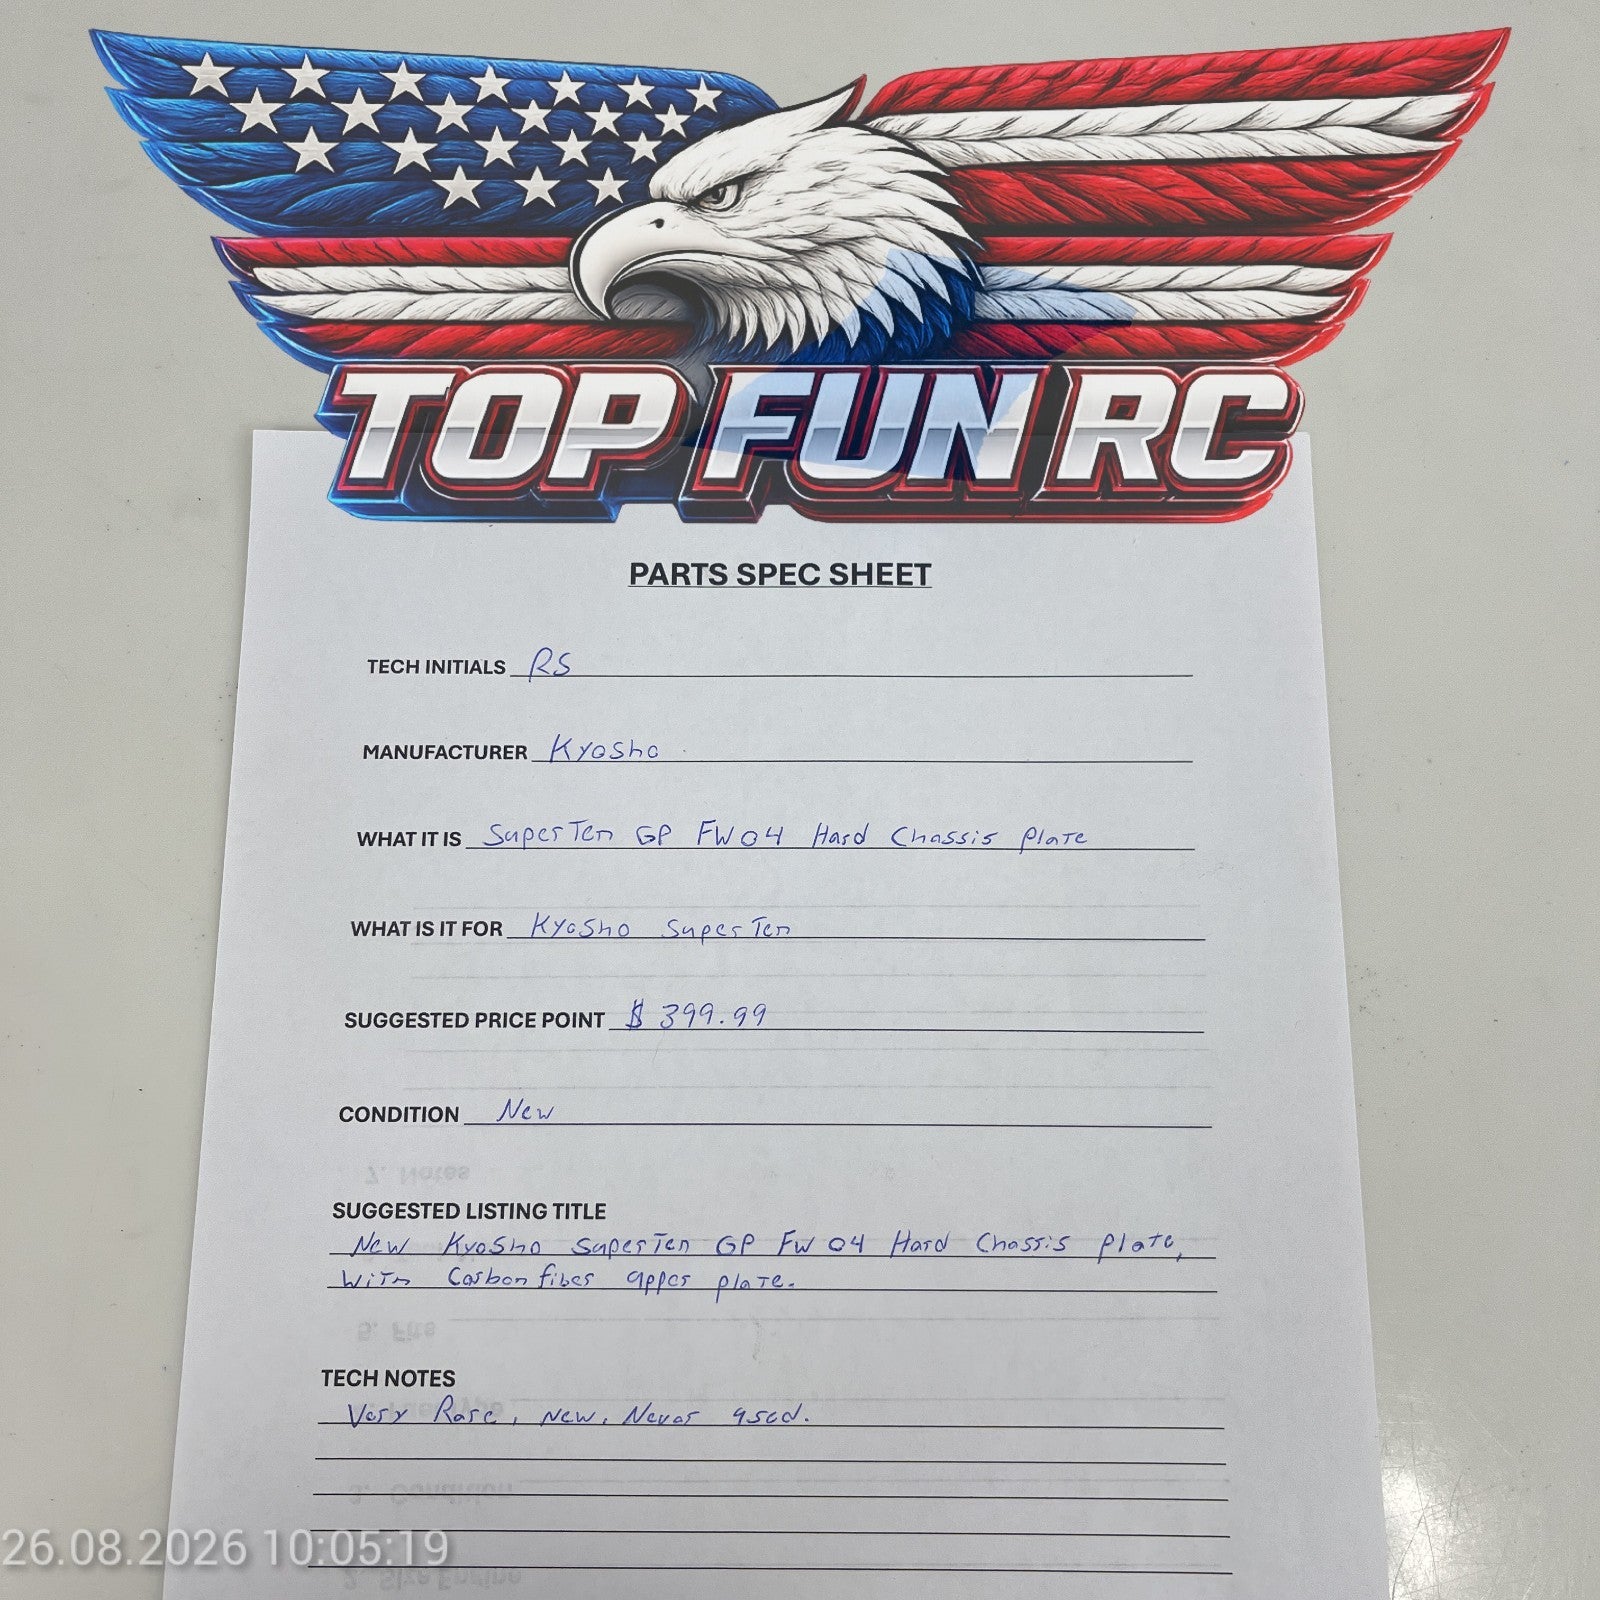 TOP FUN RC
PARTS SPEC SHEET
TECH INITIALS RS
MANUFACTURER Kyosho
WHAT IT IS SuperTen GP FW04 Hard Chassis Plate
WHAT IS IT FOR Kyosho SuperTen
SUGGESTED PRICE POINT $ 399.99
CONDITION New
7. Notes
SUGGESTED LISTING TITLE
New Kyosho SuperTen GP FW04 Hard Chassis Plate,
With Carbon fiber upper plate.
5. Fits
TECH NOTES
Very Rare, New, Never used.
3. Condition
26.08.2026 10:05:19
2. Size Engine